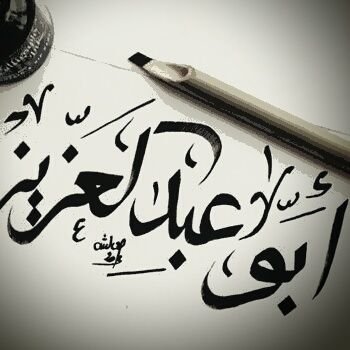 أبو عبدالعزيز